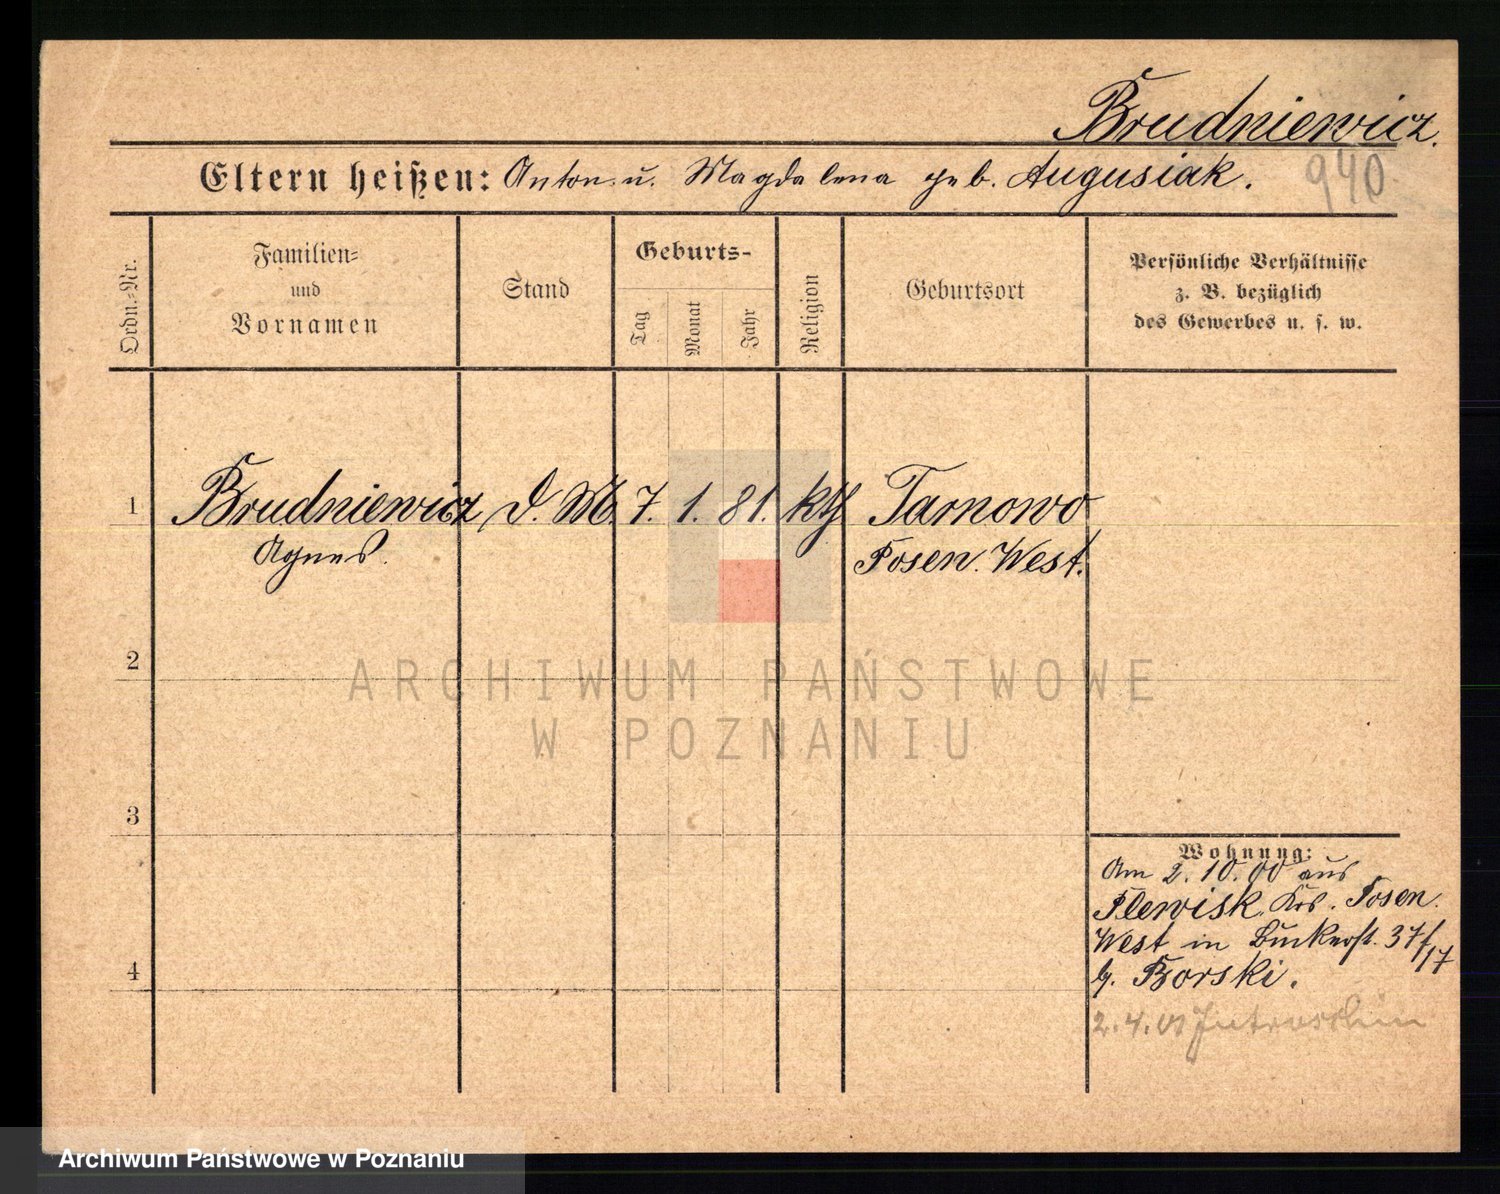 Brudniewicz.
Eltern heißen: Anton u. Magdalena geb. Augusiak.
940
Ordn.-Nr.
Familien-
und
Vornamen
Stand
Geburts-
Tag
Monat
Jahr
Religion
Geburtsort
Persönliche Verhältnisse
z. B. bezüglich
des Gewerbes u. s. w.
1 Brudniewicz D. M. 7. 1. 81. kth Tarnowo
Agnes. Posen. West.
2
ARCHIWUM PAŃSTWOWE
W POZNANIU
3
Wohnung:
Am 2.10.00 aus
Plewisk, Krs. Posen.
West in 37/17
4
b. Borski.
2.4.01 Jutroschin
Archiwum Państwowe w Poznaniu